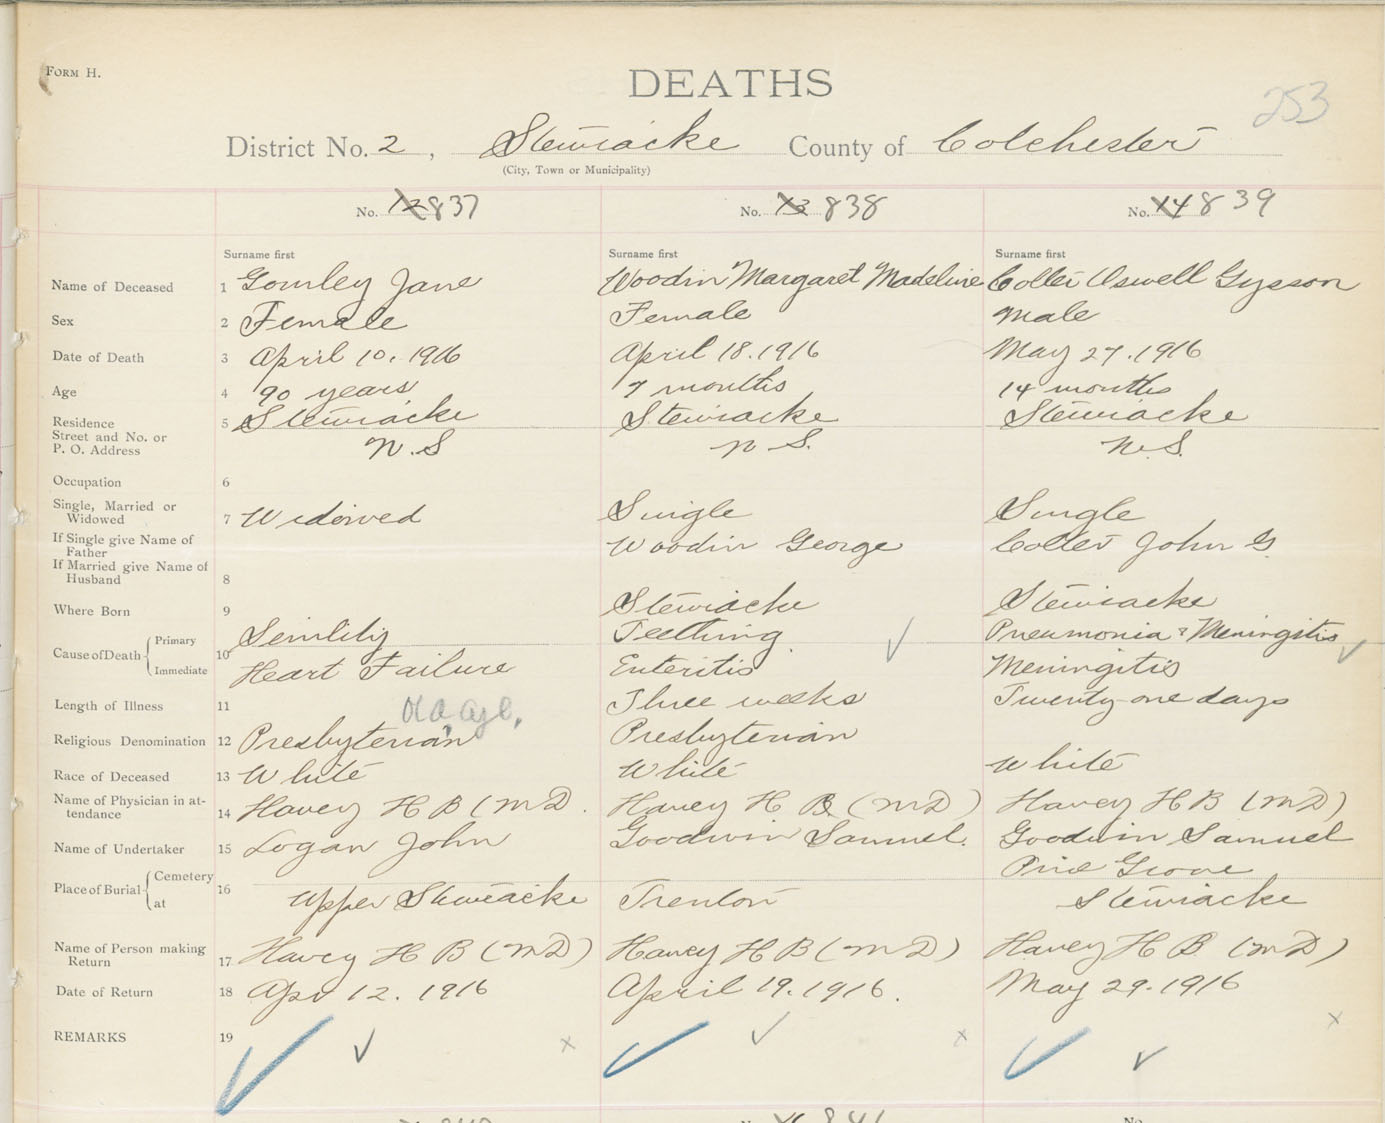 FORM H.
DEATHS
253
District No. 2, Stewiacke County of Colchester
(City, Town or Municipality)
No. 12 837 No. 13 838 No. 14 839
Surname first Surname first Surname first
Name of Deceased 1 Gourley Jane Woodin Margaret Madeline Colter Oswell Gysson
Sex 2 Female Female Male
Date of Death 3 April 10. 1916 April 18. 1916 May 27. 1916
Age 4 90 years 7 months 14 months
Residence 5 Stewiacke Stewiacke Stewiacke
Street and No. or
P. O. Address N.S N S. N.S.
Occupation 6
Single, Married or
Widowed 7 Widowed Single Single
If Single give Name of
Father Woodin George Colter John G
If Married give Name of
Husband 8
Where Born 9 Stewiacke Stewiacke
Cause of Death Primary 10 Senility Teething Pneumonia & Meningitis
Immediate Heart Failure Enteritis Meningitis
Length of Illness 11 Three weeks Twenty-one days
Old age,
Religious Denomination 12 Presbyterian Presbyterian
Race of Deceased 13 White White White
Name of Physician in at-
tendance 14 Havey H B (M D. Havey H B (M D) Havey H B (M D)
Name of Undertaker 15 Logan John Goodwin Samuel. Goodwin Samuel
Place of Burial Cemetery 16 Pine Grove
at Upper Stewiacke Trenton Stewiacke
Name of Person making
Return 17 Havey H B (M D) Havey H B (M D) Havey H B (M D)
Date of Return 18 Apr 12. 1916 April 19. 1916. May 29. 1916
REMARKS 19
841
No.